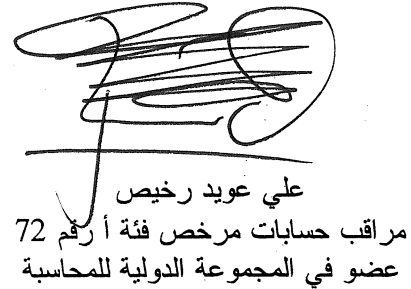 علي عويد رخيص
مراقب حسابات مرخص فئة أ رقم 72
عضو في المجموعة الدولية للمحاسبة